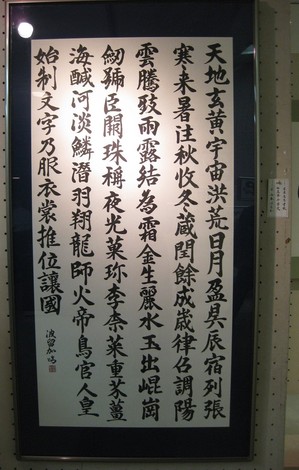 天地玄黄宇宙洪荒日月盈昃辰宿列張
寒来暑往秋收冬蔵閏餘成歳律召調陽
雲騰致雨露結為霜金生麗水玉出崐崗
劒號巨闕珠稱夜光菓珎李柰菜重芥薑
海醎河淡鱗潜羽翔龍師火帝鳥官人皇
始制文字乃服衣裳推位讓國
波留加